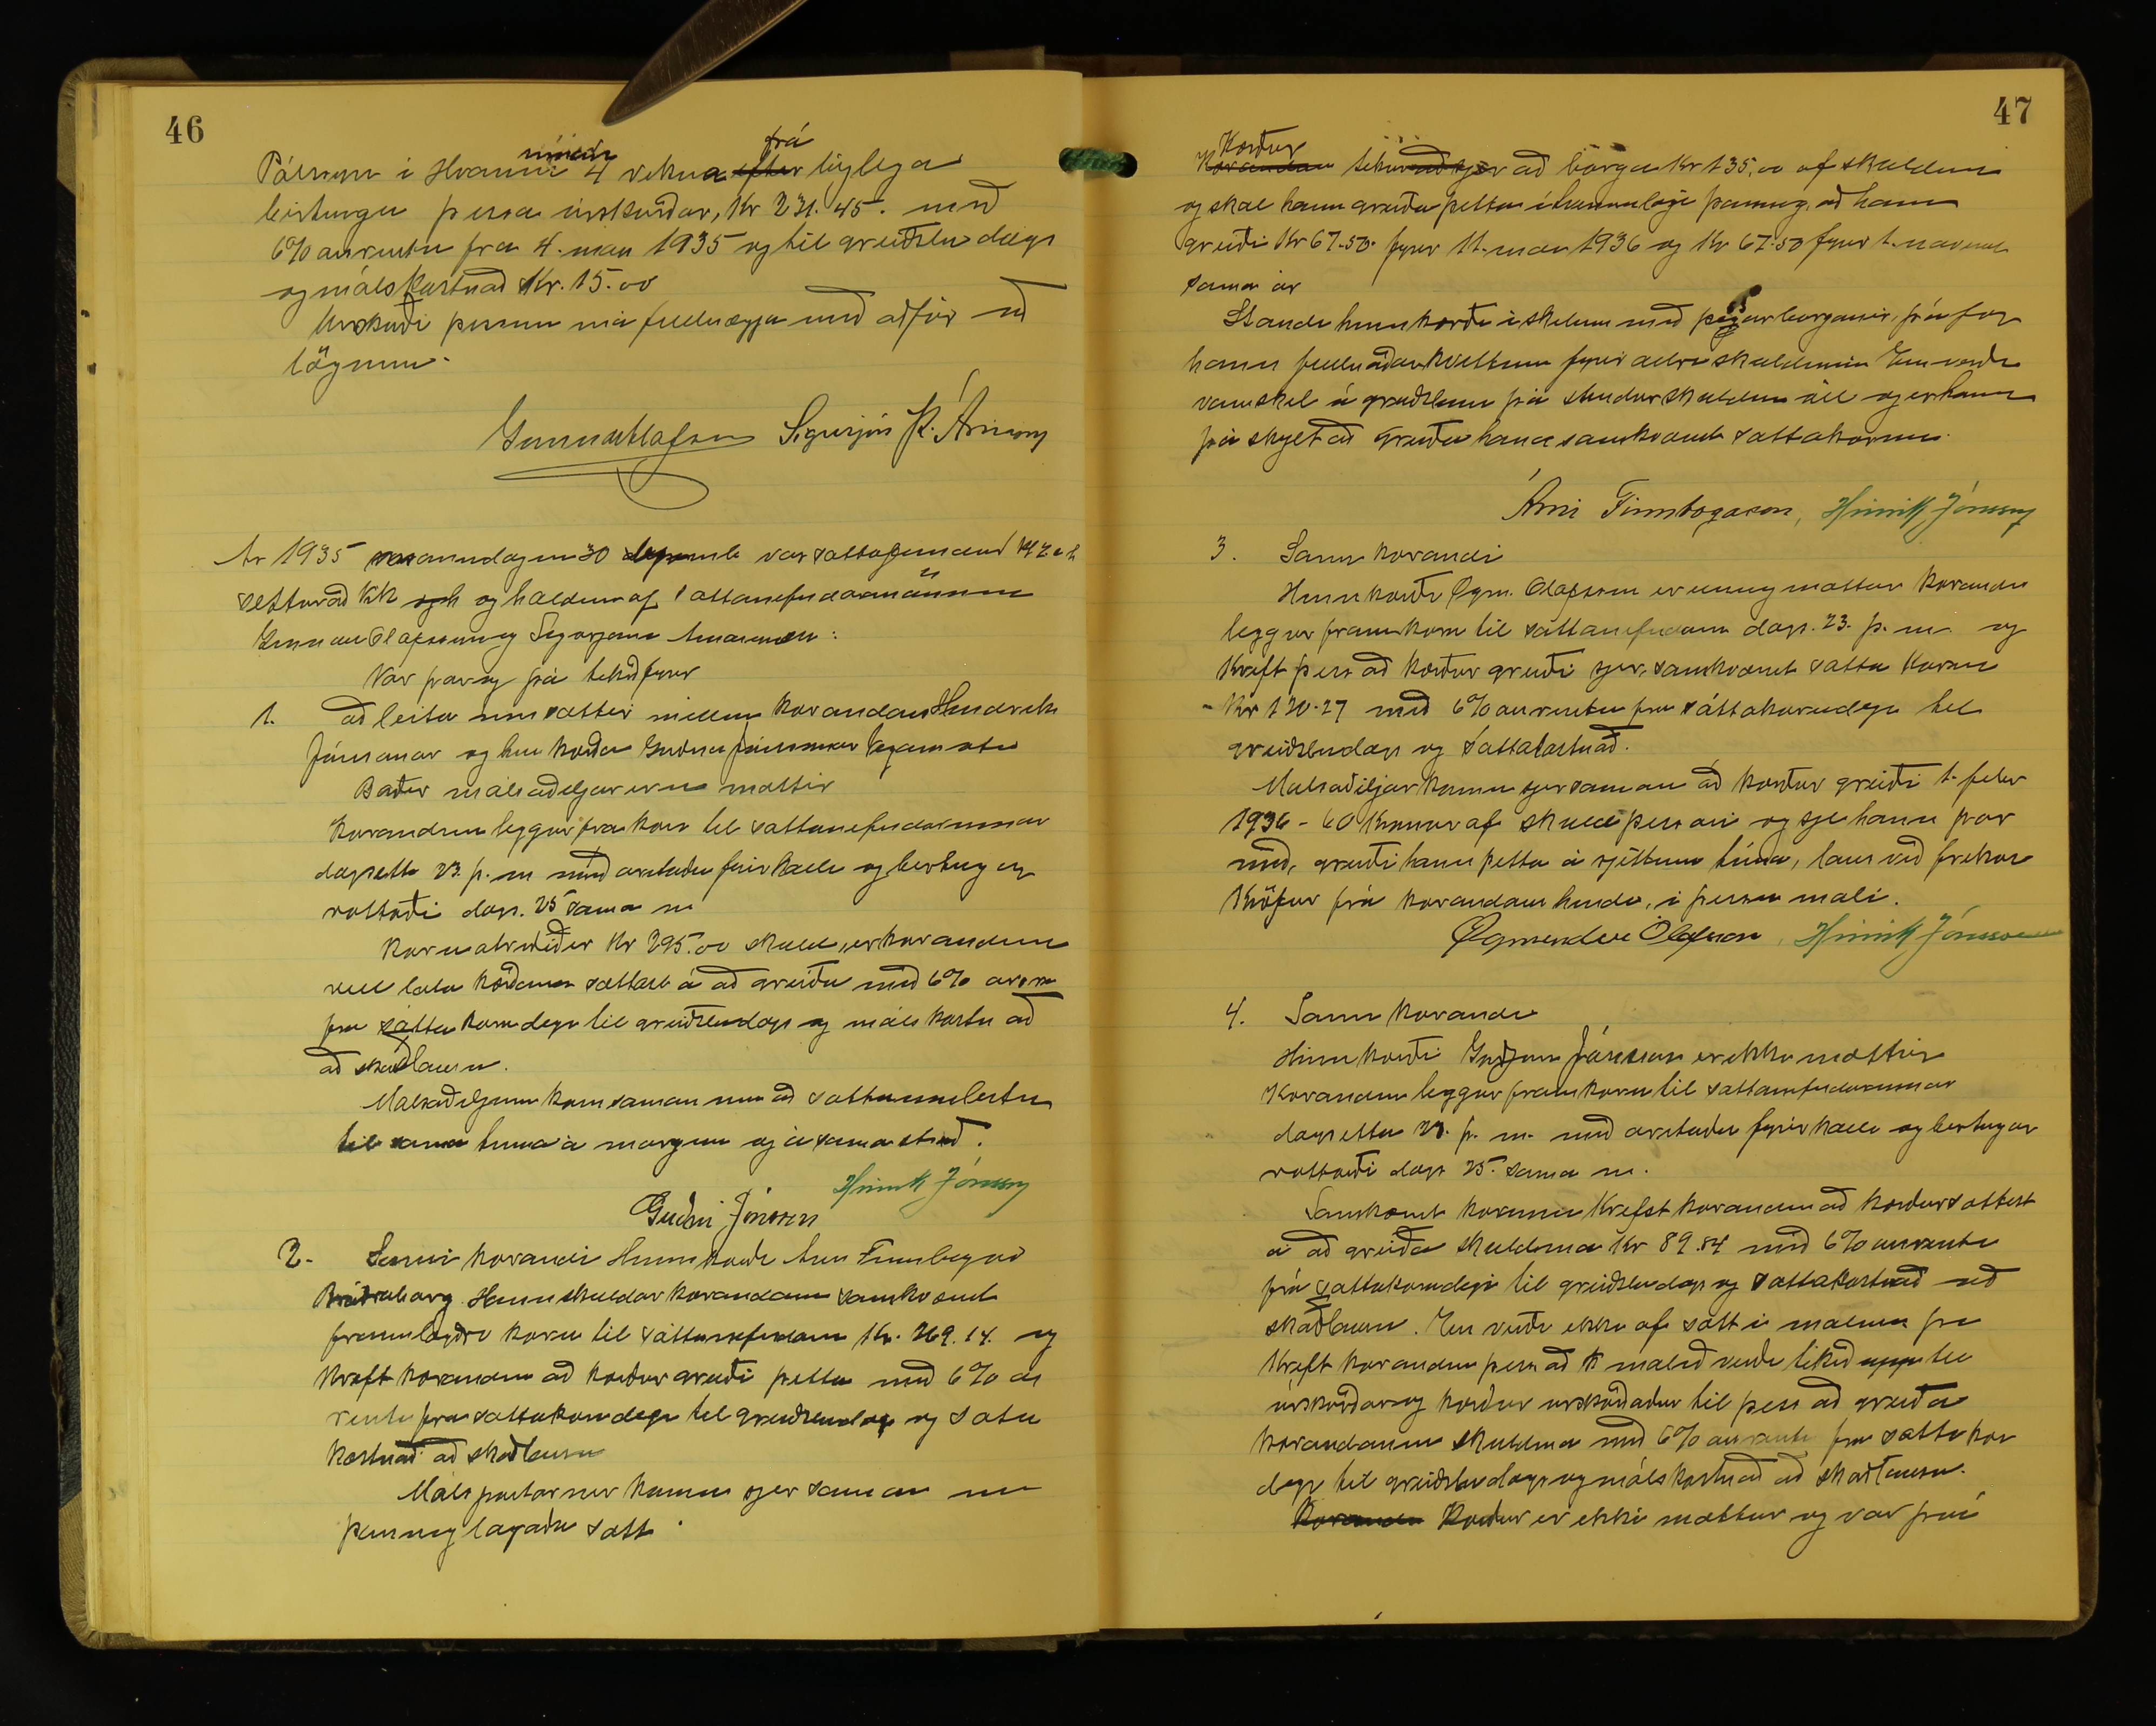 46
Pálssyni í Hvammi innan 4 vikna efter frá löglega
birtingu þessa úrskurðar, Kr 231.45. með
6% ársrentu fra 4. mai 1935 og til greiðsludags
og málskostnað Kr. 15.00
Úrskurði þessum má fullnægja með aðför að
lögum.
Gunnar Ólafsson Sigurjón Þ. Árnason
Ár 1935 manudaginn 30 desemb var sattafundur
settur að og haldinn af sattanefndarmönnum
Gunnar Olafssyni og Sigurjoni Arnasyni:
Var þar og þá tekið fyrir
1. að leita um sættir millum kærandans Hendriks
Jónssonar og hins kærða Guðna Jónssonar
Baðir málsaðiljar eru mættir
Kærandinn leggur fra kæru til sattanefndarinnar
dagsetta 23. þ. m með areiðu fyrirkalli og birtingar
vottorði dags. 25 sama m
Kæru atriðið er Kr 295.00 skuld, er kærandinn
vill lata kærðann sættast á að greiða með 6%
fra sátta kæru degi til greiðsludags og máls kostnað
að skaðlausu.
Málsaðiljum kom saman um að sattaumleitun
til sama tima á morgun og á sama stað.
Hinrik Jónsson
Guðni Jónsson
2. Sami kærandi Hinn kærði Arni Finnbogas
Bráðraborg. Hann skuldar kærandanum samkvæmt
framlagðri kæru til sáttanefndarinnar Kr. 269.14. og
Kræft kærandinn að kærður greiði þetta með 6% árs
rentu fra sattakærudegi til greiðsludags og satta
kostnað að skaðlausu
Málspartarner komu sjer saman um
þannig lagaða satt.
47
Kærður
Kærandan tekur að sjer að borga Kr 135,00 af skuldinni
og skal hann greiða þetta í þannig, að hann
greiði Kr 67.50. fyrir 11. mai 1936 og Kr 67.50 fyrir 1. november
sama ár
Standi hinn kærði i skilum með þessar borganir, þá fær
hann fullnaðarkvittun fyrir allri skuldinni En verði
vanskil á greiðslunni þá stendur skuldin öll og er hann
þá skylt að greiða hana samkvæmt sattakærunni.
Árni Finnbogason, Hinrik Jónsson
3. Sami kærandi
Hinn kærði Ögm. Olafsson er einnig mættur Kærandi
leggur fram kæru til sáttanefndarinnar dags. 23. þ. m. og
Kræft þess að kærður greiði sjer, samkvæmt satta kærunni
- Kr 120.27 með 6% ársrentu fra sáttakærudegi til
greiðsludags og sattakostnað.
Malsaðiljar komu sjer saman að kærður greiði 1. febr
1936 - 60 Kronur af skuld þessari og sje hann þar
með, greiði hann þetta á rjettum tíma, laus við frekari
Kröfur frá kærandans hendi, i þessu mali.
Ögmundur Ólafsson, Hinrik Jónsson
4. Sami kærandi
Hinn kærði Guðjon Jónsson er ekki mættur
Kærandinn leggur fram kæru til sattanefndarinnar
dagsetta 23. þ. m. með areiðu fyrirkalli og birtingar
vottorði dags 25. sama m.
Samkvæmt kærunni Krefst kærandinn að kærður sættist
á að greiða skuldina Kr 89.84 með 6% ársrentu
frá sattakærudegi til greiðsludags og sattakostnað að
skaðlausu. En verði ekki af sátt i malinu þa
Kræft kærandinn þess að malið verði tekið upp til
úrskurðar og kærður urskurðaður til þess að greiða
kærandanum skuldina með 6% ársrentu fra sattakæru
degi til greiðsludags og málskostnað að skaðlausu.
Kærandi Kærður er ekki mættur og var því